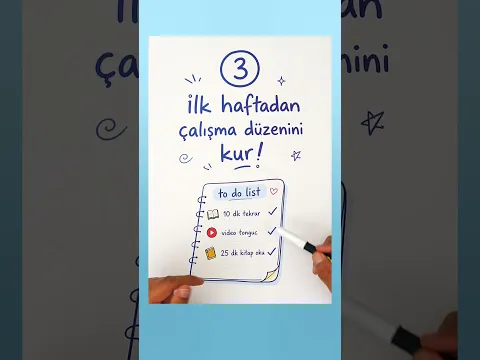 3
ilk haftadan
çalışma düzenini
kur!
to do list
10 dk tekrar
video tonguç
25 dk kitap oku